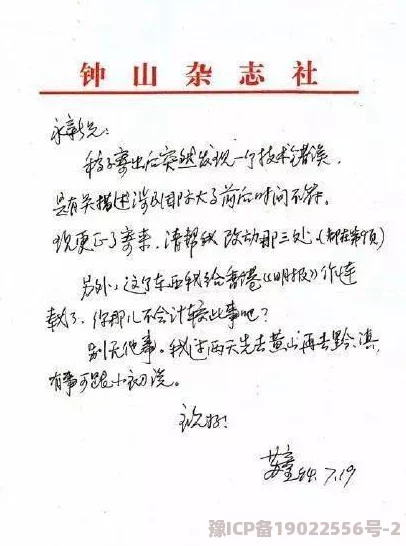 钟山杂志社
永新兄:
稿子寄出后突然发现一个技术错误,
是有关描述涉及国际大事前后时间不符。
现更正了寄来,请帮我改动那三处(都在第 页)
另外,这个东西我给香港《明报》作连
载了,你那儿不会计较此事吧?
别无他事。我过两天先去黄山再去黔、滇,
有事可跟小初说。
祝好!
苏童 7.19
豫ICP备19022556号-2